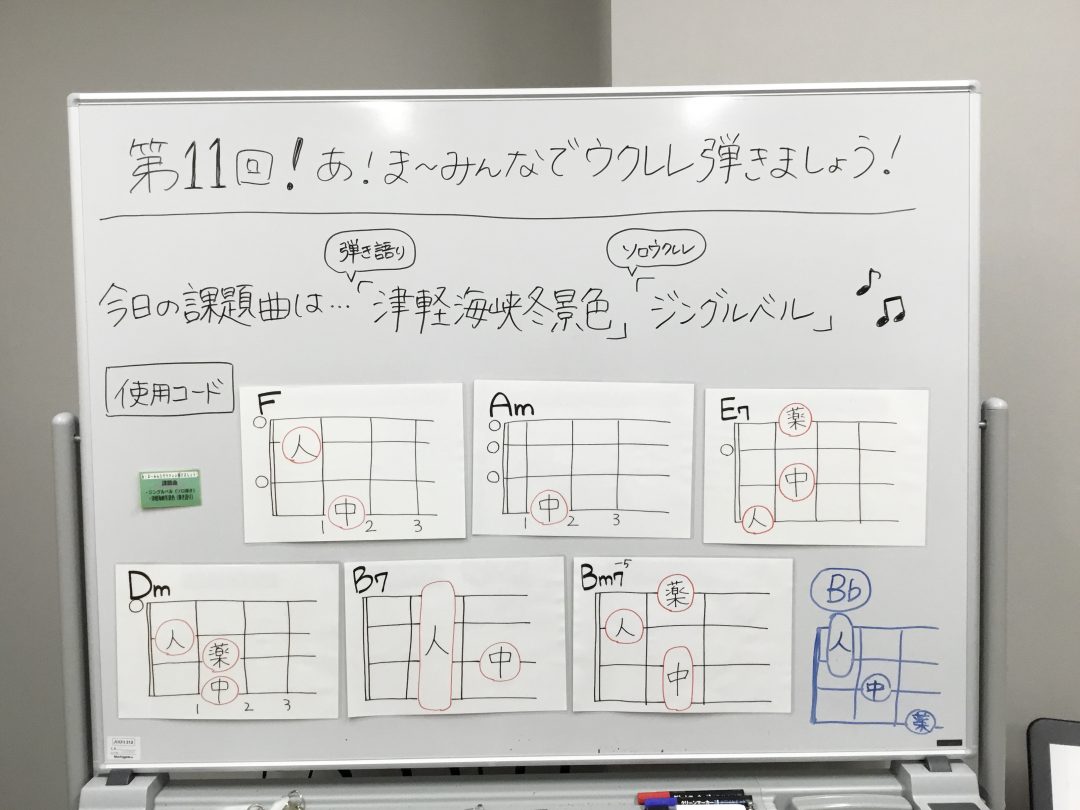 第11回！あ！ま〜みんなでウクレレ弾きましょう！
弾き語り
ソロウクレレ
今日の課題曲は…「津軽海峡冬景色」「ジングルベル」
使用コード
F
人
中
1 2 3
Am
中
1 2 3
E7
薬
中
人
課題曲
Dm
人
薬
中
1 2 3
B7
人
中
Bm7-5
薬
人
中
Bb
人
中
薬